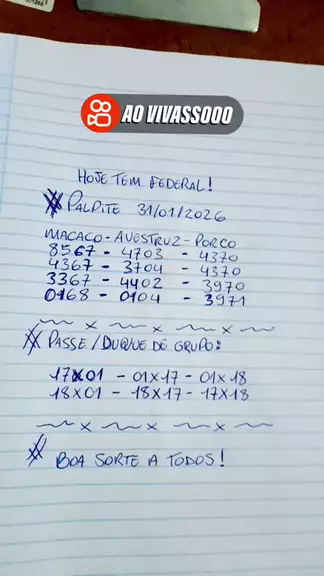 AO VIVASSOOO
HOJE TEM FEDERAL!
PALPITE 31/01/2026
MACACO - AVESTRUZ - PORCO
8567 - 4703 - 4370
4367 - 3704 - 4370
3367 - 4402 - 3970
0168 - 0104 - 3971
PASSE/DUQUE DE GRUPO:
17X01 - 01X17 - 01X18
18X01 - 18X17 - 17X18
BOA SORTE A TODOS!